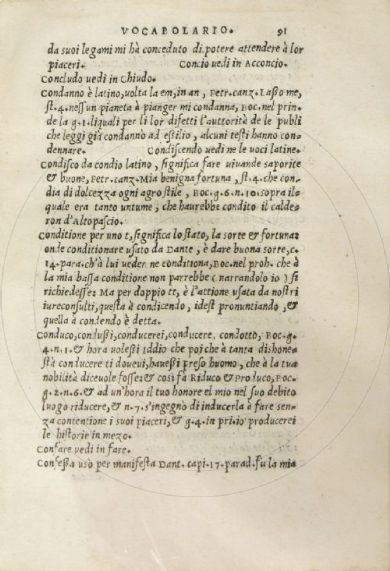 VOCABOLARIO. 91
da suoi legami mi hà conceduto di potere attendere à lor
piaceri. Concio uedi in Acconcio.
Concludo uedi in Chiudo.
Condanno è latino, uolta la em, in an, Petr. canz. Lasso me,
st. 4. nessun pianeta à pianger mi condanna, Boc. nel prin.
de la g. 1. liquali per li lor difetti l'auttorità de le publi
che leggi già condannò ad essilio, alcuni testi hanno con-
dennare. Condiscendo uedi ne le uoci latine.
Condisco da condio latino, significa fare uiuande saporite
& buone, Petr. canz. Mia benigna fortuna, st. 4. che con-
dia di dolcezza ogni agro stile, Boc. g. 6. n. 10. sopra il
quale era tanto untume, che haurebbe condito il calde-
ron d'Altopascio.
Conditione per uno t, significa lo stato, la sorte & fortuna:
onde conditionare usato da Dante, è dare buona sorte, c.
14. para. ch'à lui ueder ne conditiona, Boc. nel proh. che à
la mia bassa conditione non parrebbe (narrandolo io) si
richiedesse: Ma per doppio tt, è l'attione usata da nostri
iureconsulti, questa à condicendo, idest pronuntiando, &
quella à condendo è detta.
Conduco, condussi, conducerei, conducere. condotto, Boc. g.
4. n. 1. & hora uolesti Iddio che poi che à tanta dishone-
stà conducere ti doueui, hauessi preso huomo, che à la tua
nobilità diceuole fosse: & così fa Riduco & Produco, Boc.
g. 2. n. 6. & ad un'hora il tuo honore el mio nel suo debito
luogo riducere, & n. 7. s'ingegnò di inducerla à fare sen-
za contentione i suoi piaceri, & g. 4. in pri. io producerei
le historie in mezo.
Confare vedi in fare.
Confessa uso per manifesta Dant. capi. 17. parad. fù la mia